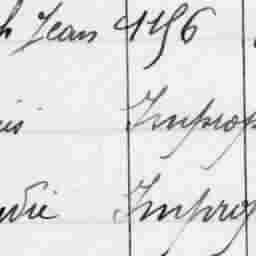 h Jean 1156
is Improp
die Improp